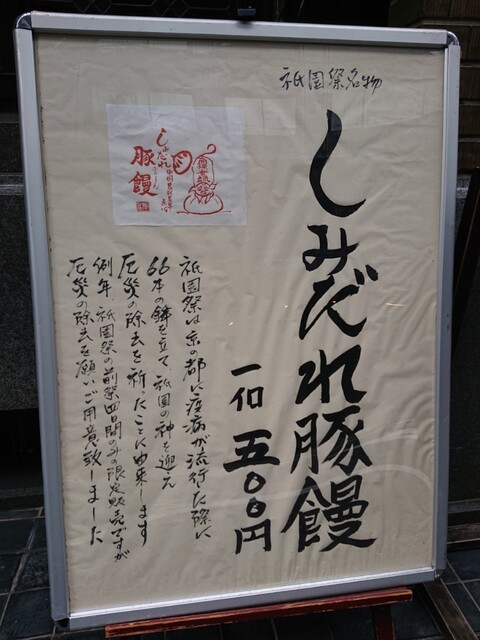 祇園祭名物
しみだれ豚饅
一個 五〇〇円
しみだれ
豚饅
祇園祭は京の都に疫病が流行した際に
66本の鉾を立て 祇園の神を迎え
厄災の除去を祈ったことに由来します
例年、祇園祭の前祭四日間のみの限定販売ですが
厄災の除去を願いご用意致しました